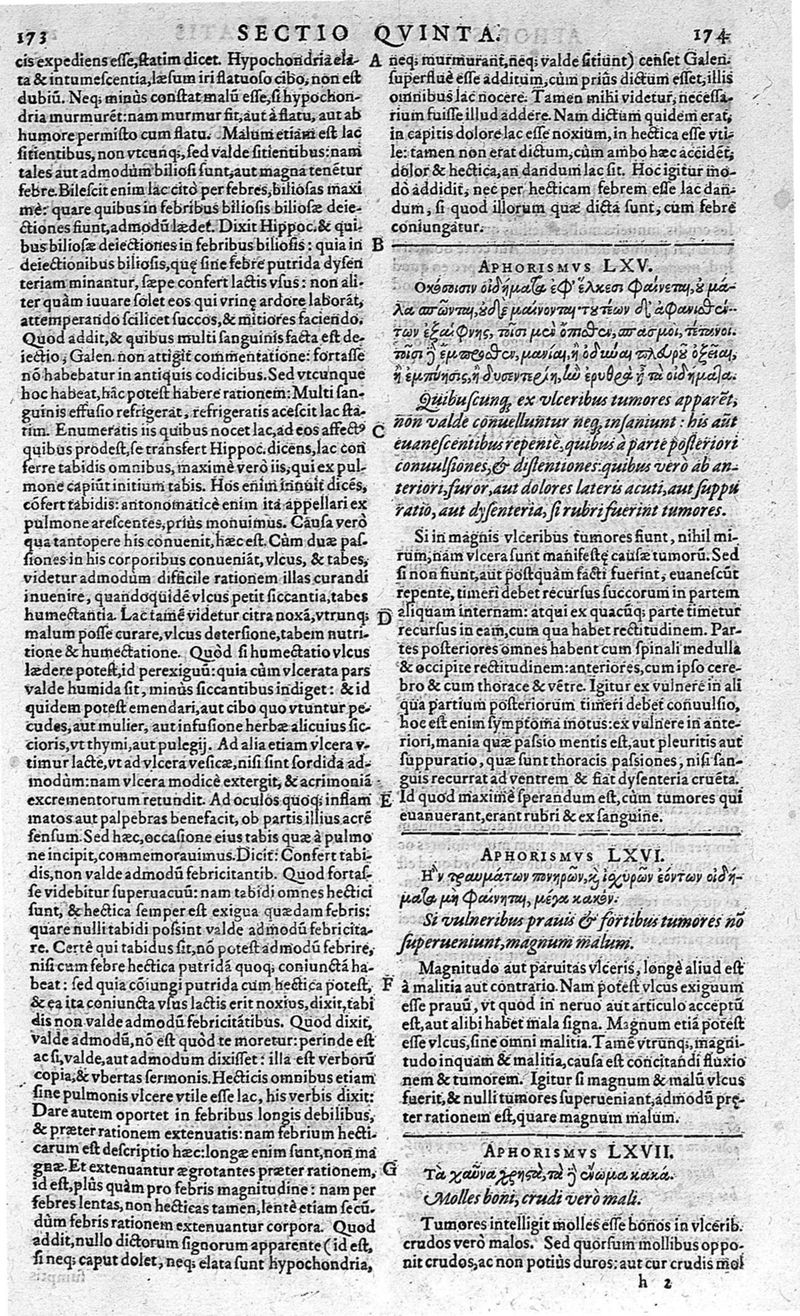 173 SECTIO QVINTA. 174
cis expediens esse, statim dicet. Hypochondria ela-
ta & intumescentia, læsum iri flatuoso cibo, non est
dubiũ. Neq; minùs constat malũ esse, si hypochon-
dria murmurẽt: nam murmur fit, aut à flatu, aut ab
humore permisto cum flatu. Malum etiam est lac
sitientibus, non vtcunq;, sed valde sitientibus: nam
tales aut admodũ biliosi sunt, aut magna tenẽtur
febre. Bilescit enim lac citò per febres, biliosas maxi
mè: quare quibus in febribus biliosis biliosæ deie-
ctiones fiunt, admodũ lædet. Dixit Hippoc. & qui-
bus biliosæ deiectiones in febribus biliosis: quia in
deiectionibus biliosis, quę sine febre putrida dysen
teriam minantur, sæpe confert lactis vsus: non ali-
ter quàm iuuare solet eos qui vrinę ardore laborãt,
attemperando scilicet succos, & mitiores faciendo.
Quod addit, & quibus multi sanguinis facta est de-
iectio, Galen. non attigit commentatione: fortasse
nõ habebatur in antiquis codicibus. Sed vtcunque
hoc habeat, hãc potest habere rationem: Multi san-
guinis effusio refrigerat, refrigeratis acescit lac sta-
tim. Enumeratis iis quibus nocet lac, ad eos affectꝰ
quibus prodest, se transfert Hippoc. dicens, lac con
ferre tabidis omnibus, maximè verò iis, qui ex pul-
mone capiũt initium tabis. Hos enim innuit dicẽs,
cõfert tabidis: antonomaticè enim ita appellari ex
pulmone arescentes, priùs monuimus. Causa verò
qua tantopere his conuenit, hæc est. Cùm duæ pas-
siones in his corporibus conueniãt, vlcus, & tabes,
videtur admodum difficile rationem illas curandi
inuenire, quandoquidẽ vlcus petit siccantia, tabes
humectantia. Lac tamẽ videtur citra noxã, vtrunq;
malum posse curare, vlcus detersione, tabem nutri-
tione & humectatione. Quòd si humectatio vlcus
lædere potest, id perexiguũ: quia cùm vlcerata pars
valde humida sit, minùs siccantibus indiget: & id
quidem potest emendari, aut cibo quo vtuntur pe-
cudes, aut mulier, aut infusione herbæ alicuius sic-
cioris, vt thymi, aut pulegij. Ad alia etiam vlcera v-
timur lacte, vt ad vlcera vesicæ, nisi sint sordida ad-
modùm: nam vlcera modicè extergit, & acrimoniã
excrementorum retundit. Ad oculos quoq; inflam
matos aut palpebras benefacit, ob partis illius acrẽ
sensum. Sed hæc, occasione eius tabis quæ à pulmo
ne incipit, commemorauimus. Dicit: Confert tabi-
dis, non valde admodũ febricitantib. Quod fortas-
se videbitur superuacuũ: nam tabidi omnes hectici
sunt, & hectica semper est exigua quædam febris:
quare nulli tabidi possint valde admodũ febricita-
re. Certè qui tabidus sit, nõ potest admodũ febrire,
nisi cum febre hectica putridã quoq; coniunctã ha-
beat: sed quia cõiungi putrida cum hectica potest,
& ea ita coniuncta vsus lactis erit noxius, dixit, tabi
dis non valde admodũ febricitãtibus. Quod dixit,
valde admodũ, nõ est quòd te moretur: perinde est
ac si, valde, aut admodum dixisset: illa est verborũ
copia, & vbertas sermonis. Hecticis omnibus etiam
sine pulmonis vlcere vtile esse lac, his verbis dixit:
Dare autem oportet in febribus longis debilibus,
& præter rationem extenuatis: nam febrium hecti-
carum est descriptio hæc: longæ enim sunt, non ma
gnæ. Et extenuantur ægrotantes præter rationem,
id est, plùs quàm pro febris magnitudine: nam per
febres lentas, non hecticas tamen, lentè etiam secũ-
dùm febris rationem extenuantur corpora. Quod
addit, nullo dictorum signorum apparente (id est,
si neq; caput dolet, neq; elata sunt hypochondria,
A neq; murmurant, neq; valde sitiunt) censet Galen.
superfluè esse additum, cùm priùs dictum esset, illis
omnibus lac nocere. Tamen mihi videtur, necessa-
rium fuisse illud addere. Nam dictum quidem erat,
in capitis dolore lac esse noxium, in hectica esse vti-
le: tamen non erat dictum, cùm ambo hæc accidẽt,
dolor & hectica, an dandum lac sit. Hoc igitur mo-
dò addidit, nec per hecticam febrem esse lac dan-
dum, si quod illorum quæ dicta sunt, cum febre
coniungatur.
B
APHORISMVS LXV.
Ὁκόσοισιν οἰδήματα ἐφ᾽ ἕλκεσι φαίνεται, οὐ μά-
λα σπῶνται, οὐδὲ μαίνονται· τουτέων δὲ ἀφανισθέν-
των ἐξαίφνης, τοῖσι μὲν ὄπισθεν, σπασμοὶ, τέτανοι.
τοῖσι δὲ ἔμπροσθεν, μανίαι, ἢ ὀδύναι πλευροῦ ὀξεῖαι,
ἢ ἐμπύησις, ἢ δυσεντερίη, ἢν ἐρυθρὰ ᾖ τὰ οἰδήματα.
Quibuscunq, ex vlceribus tumores apparẽt,
C non valde conuelluntur neq, insaniunt: his aũt
euanescentibus repentè, quibus à parte posteriori
conuulsiones, & distentiones: quibus verò ab an-
teriori, furor, aut dolores lateris acuti, aut suppu
ratio, aut dysenteria, si rubri fuerint tumores.
Si in magnis vlceribus tumores fiunt, nihil mi-
rum, nam vlcera sunt manifestę causæ tumorũ. Sed
si non fiunt, aut postquàm facti fuerint, euanescũt
repente, timeri debet recursus succorum in partem
D aliquam internam: atqui ex quacũq; parte timetur
recursus in eam, cum qua habet rectitudinem. Par-
tes posteriores omnes habent cum spinali medulla
& occipite rectitudinem: anteriores, cum ipso cere-
bro & cum thorace & vẽtre. Igitur ex vulnere in ali
qua partium posteriorum timeri debet conuulsio,
hoc est enim symptoma motus: ex vulnere in ante-
riori, mania quæ passio mentis est, aut pleuritis aut
suppuratio, quæ sunt thoracis passiones, nisi san-
guis recurrat ad ventrem & fiat dysenteria cruẽta.
E Id quod maximè sperandum est, cùm tumores qui
euanuerant, erant rubri & ex sanguine.
APHORISMVS LXVI.
Ἢν τραυμάτων πονηρῶν, ἢ ἰσχυρῶν ἐόντων οἰδή-
ματα μὴ φαίνηται, μέγα κακόν.
Si vulneribus prauis & fortibus tumores nõ
superueniunt, magnum malum.
Magnitudo aut paruitas vlceris, longè aliud est
F à malitia aut contrario. Nam potest vlcus exiguum
esse prauũ, vt quod in neruo aut articulo acceptũ
est, aut alibi habet mala signa. Magnum etiã potest
esse vlcus, sine omni malitia. Tamẽ vtrunq;, magni-
tudo inquam & malitia, causa est concitandi fluxio
nem & tumorem. Igitur si magnum & malũ vlcus
fuerit, & nulli tumores superueniant, admodũ prę-
ter rationem est, quare magnum malum.
APHORISMVS LXVII.
G Τὰ χαῦνα χρηστὰ, τὰ δὲ ἔνωμα κακά.
Molles boni, crudi verò mali.
Tumores intelligit molles esse bonos in vlcerib.
crudos verò malos. Sed quorsum mollibus oppo-
nit crudos, ac non potiùs duros: aut cur crudis mol
h 2